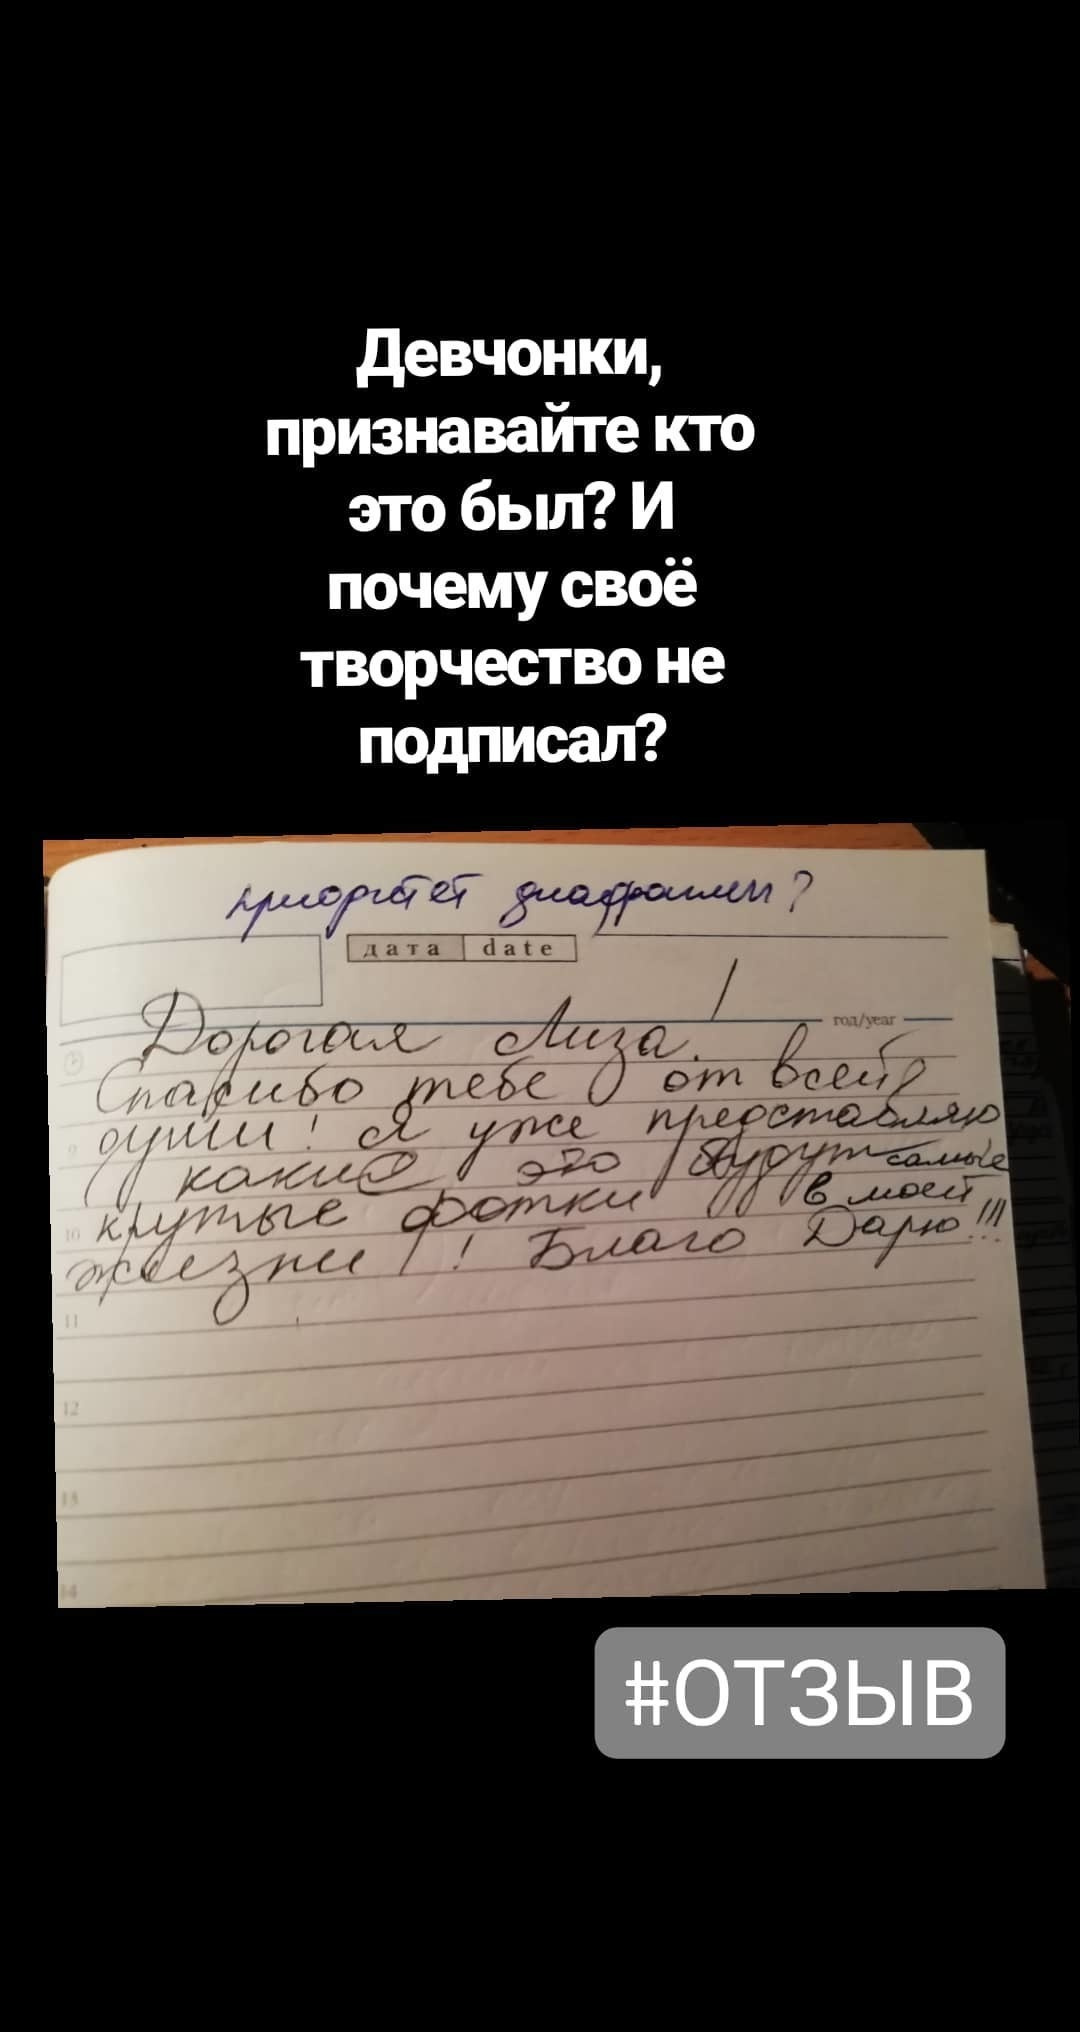 Девчонки,
признавайте кто
это был? И
почему своё
творчество не
подписал?
приоритет диафрагмы?
дата date
год/year
Дорогая Лиза!
Спасибо тебе от всей
души! Я уже представляю
какие это будут самые
крутые фотки в моей
жизни! Благо Дарю!!!
9
10
11
12
13
14
#ОТЗЫВ